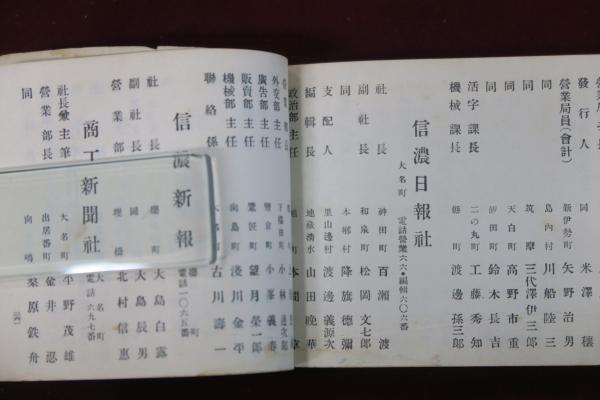 發行人 岡 米澤穰
營業局員(會計) 新伊勢町 矢野治男
同 島內村 川船陸三
同 筑摩 三代澤伊三郎
同 天白町 高野市重
同 鈴木長吉
活字課長 二の丸町 工藤秀知
機械課長 縣町 渡邊孫三郎
信濃日報社
大名町 電話營業六六・編輯六〇六番
社長 神田町 百瀬渡
副社長 和泉町 松岡文七郎
同 本鄉村 降旗德彌
支配人 里山邊村 渡邊義源次
編輯長 地藏清水 山田晚華
政治部主任
外交部主任
廣告部主任 小峯義春
販賣部主任 望月榮一郎
機械部主任 向島町 淺川金平
聯絡係 古川壽一
信濃新報
電話一〇六五番
社長 大島白露
副社長 岡 大島辰男
營業部長 北村信惠
商工新聞社
大名町
電話六九七番
社長兼主筆 大名町 平野茂雄
營業部長 出居番町 金井忍
同 向島 桑原鉄舟